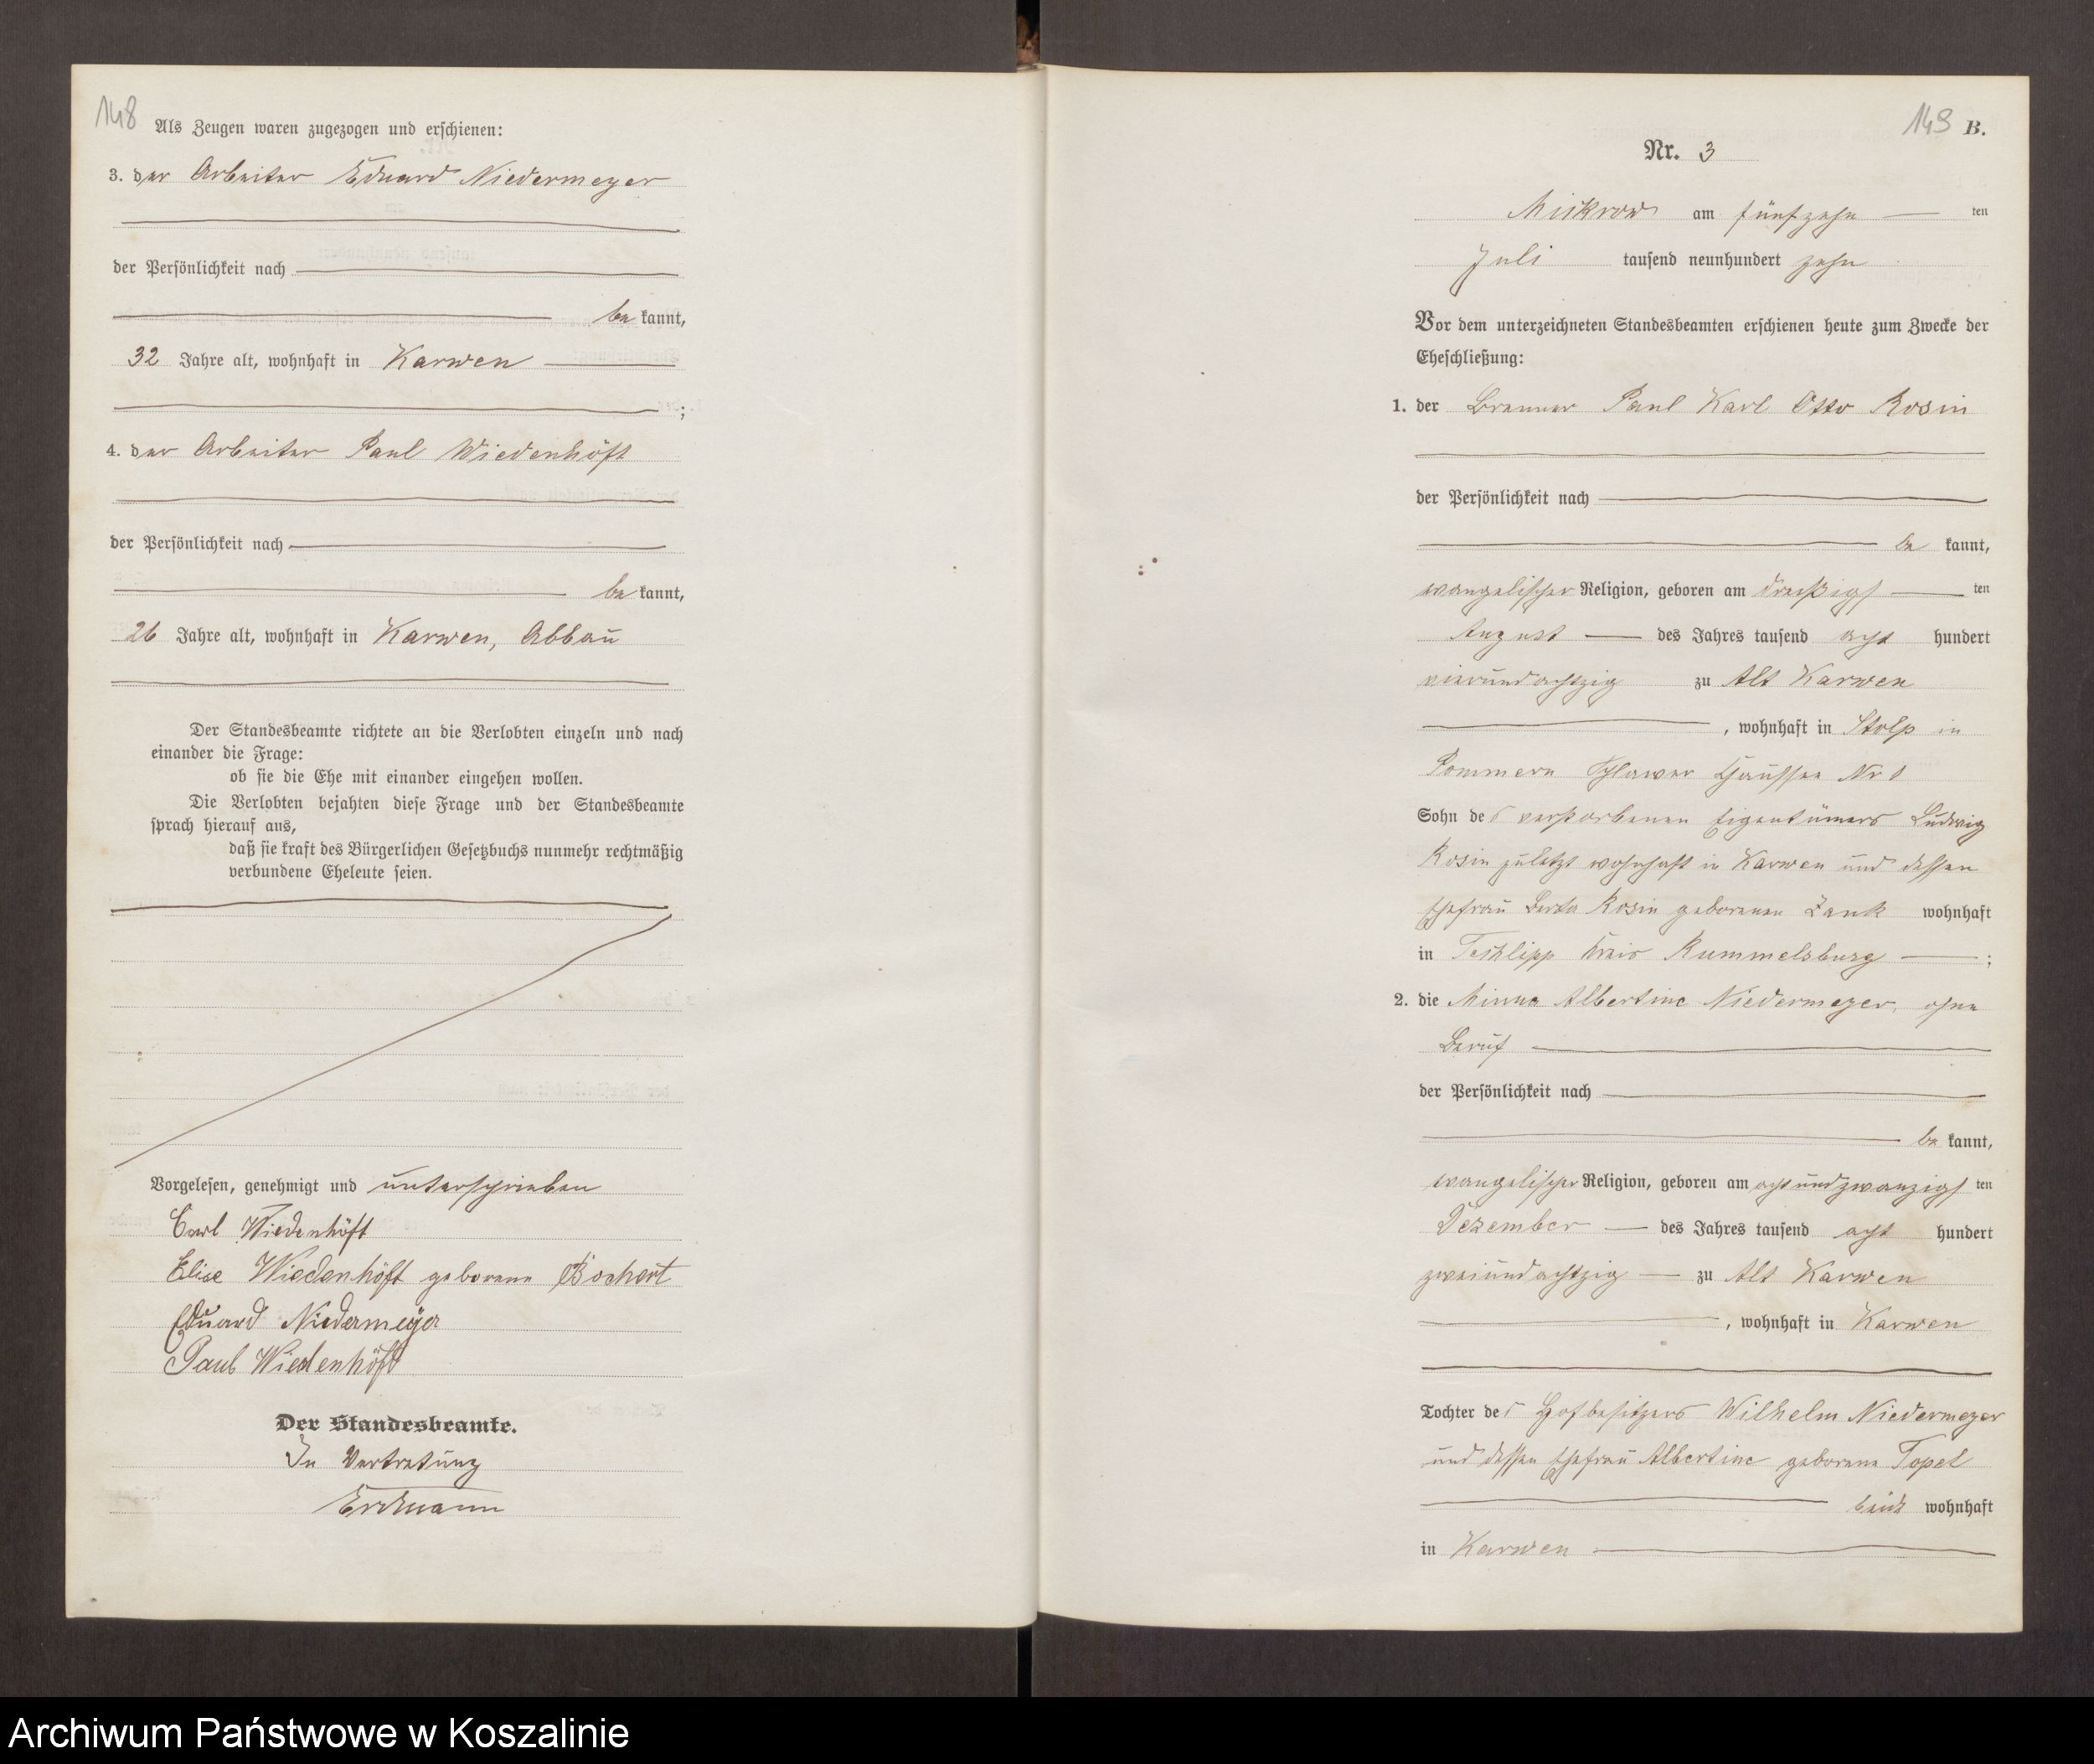 148
Als Zeugen waren zugezogen und erschienen:
3. der Arbeiter Eduard Niedermeyer
der Persönlichkeit nach
be kannt,
32 Jahre alt, wohnhaft in Karwen
;
4. der Arbeiter Paul Wiedenhöft
der Persönlichkeit nach
be kannt,
26 Jahre alt, wohnhaft in Karwen, Abbau
Der Standesbeamte richtete an die Verlobten einzeln und nach
einander die Frage:
ob sie die Ehe mit einander eingehen wollen.
Die Verlobten bejahten diese Frage und der Standesbeamte
sprach hierauf aus,
daß sie kraft des Bürgerlichen Gesetzbuchs nunmehr rechtmäßig
verbundene Eheleute seien.
Vorgelesen, genehmigt und unterschrieben
Carl Wiedenhöft
Elise Wiedenhöft geborene Bochert
Eduard Niedermeyer
Paul Wiedenhöft
Der Standesbeamte.
In Vertretung
Erdmann
149 B.
Nr. 3
Mickrow am fünfzehn ten
Juli tausend neunhundert zehn
Vor dem unterzeichneten Standesbeamten erschienen heute zum Zwecke der
Eheschließung:
1. der Brenner Paul Karl Otto Rosin
der Persönlichkeit nach
be kannt,
evangelischer Religion, geboren am dreißigs ten
August des Jahres tausend acht hundert
vierundachtzig zu Alt Karwen
, wohnhaft in Stolp in
Pommern Schlawer Chaussee Nr
Sohn des verstorbenen Eigentümers Ludwig
Rosin zuletzt wohnhaft in Karwen und dessen
Ehefrau Berta Rosin geborenen Zank wohnhaft
in Techlipp Kreis Rummelsburg ;
2. die Minna Albertine Niedermeyer, ohne
Beruf
der Persönlichkeit nach
be kannt,
evangelischer Religion, geboren am achtundzwanzigs ten
Dezember des Jahres tausend acht hundert
zweiundachtzig zu Alt Karwen
, wohnhaft in Karwen
Tochter des Hofbesitzers Wilhelm Niedermeyer
und dessen Ehefrau Albertine geborene Topel
beide wohnhaft
in Karwen
Archiwum Państwowe w Koszalinie